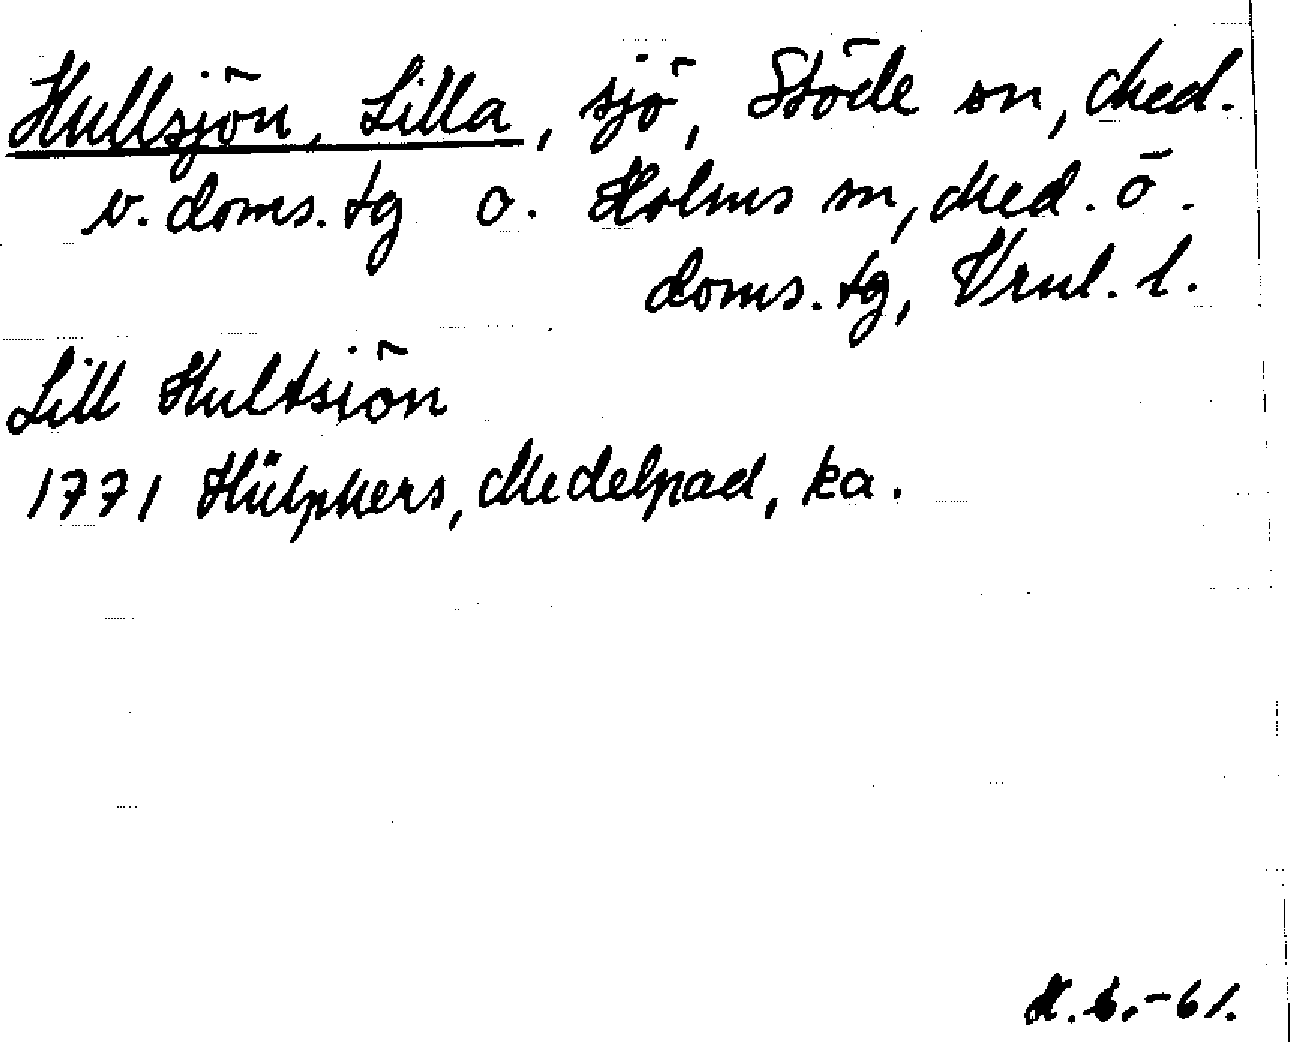 Hullsjön, Lilla, sjö, Stöde sn, Med.
v. doms.tg o. Holms sn, Med. ö.
doms.tg, Vrnl. l.
Lill Hultsiön
1771 Hülphers, Medelpad, ka.